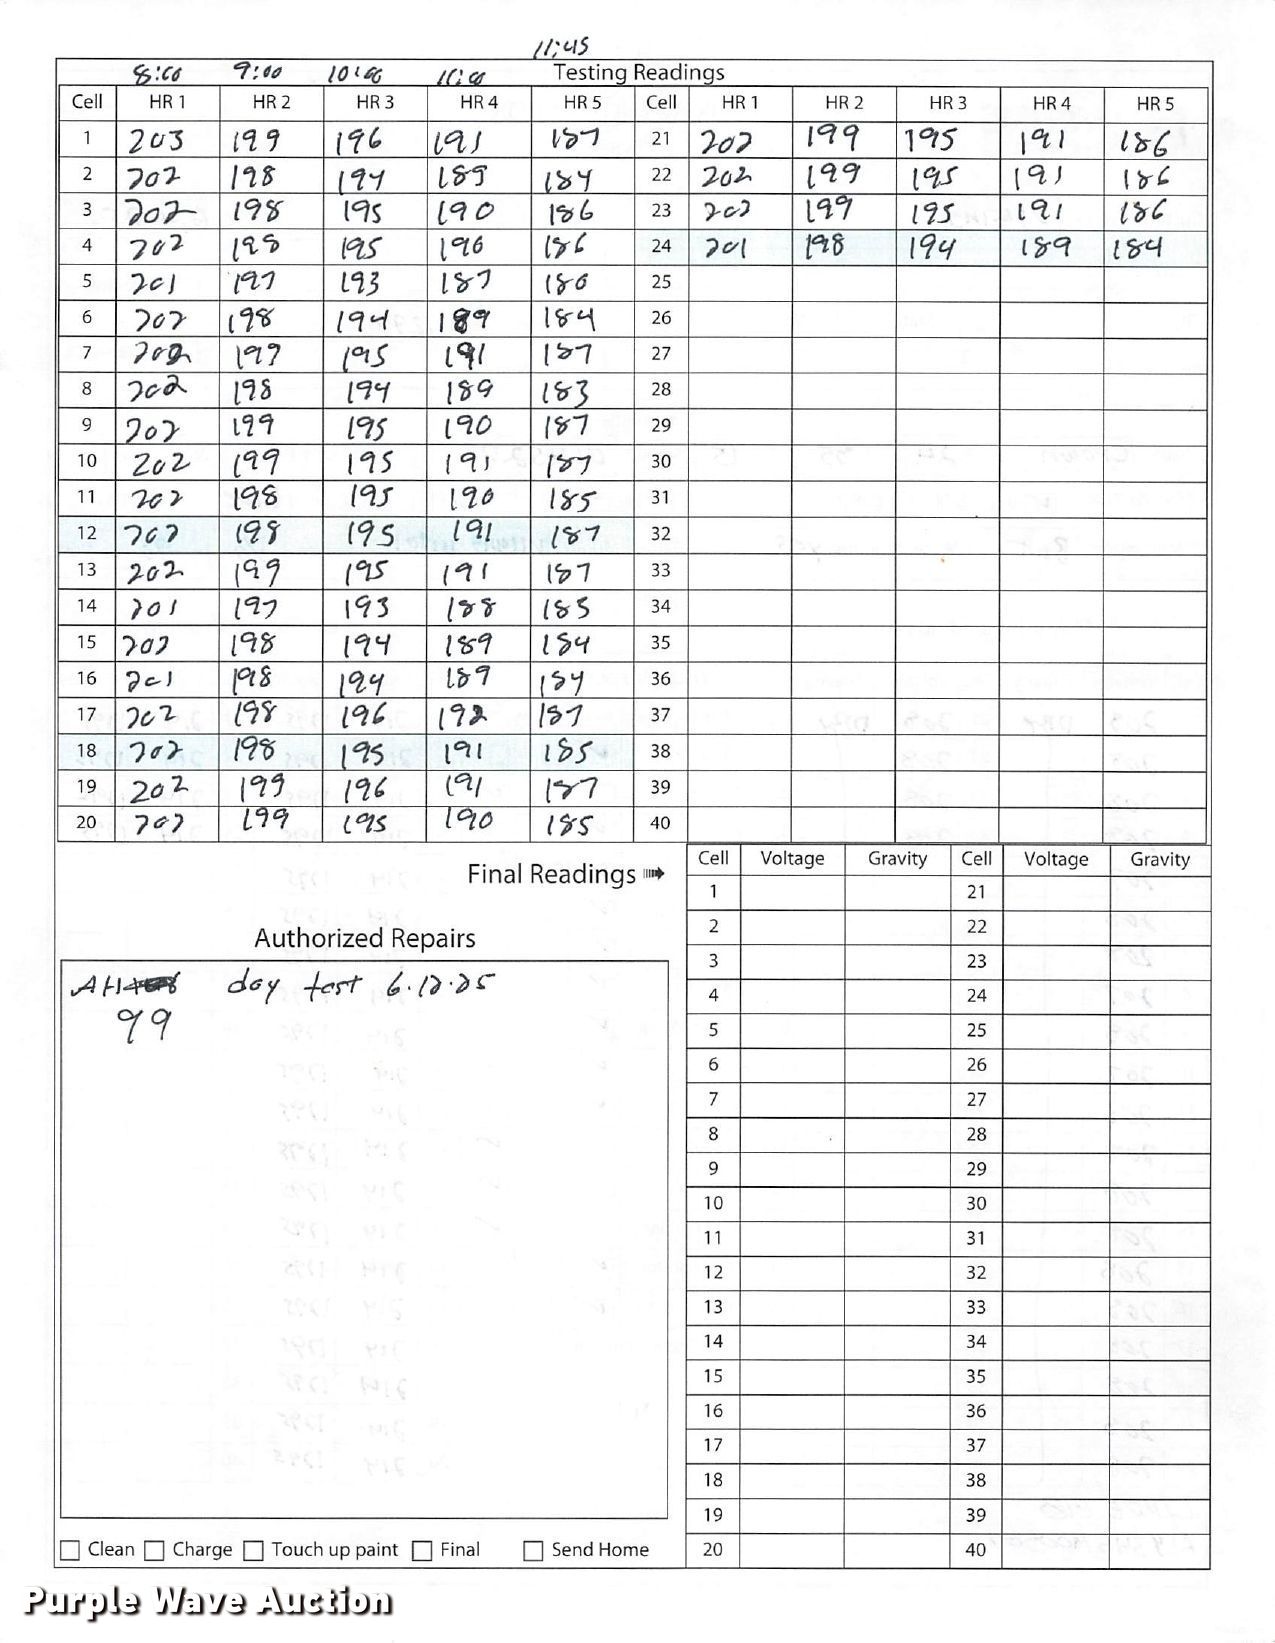 11:45
8:00 9:00 10:00 11:00 Testing Readings
Cell HR 1 HR 2 HR 3 HR 4 HR 5 Cell HR 1 HR 2 HR 3 HR 4 HR 5
1 203 199 196 191 187 21 202 199 195 191 186
2 202 198 194 189 184 22 202 199 195 191 186
3 202 198 195 190 186 23 202 199 195 191 186
4 202 198 195 190 186 24 201 198 194 189 184
5 201 197 193 187 180 25
6 202 198 194 189 184 26
7 202 199 195 191 187 27
8 202 198 194 189 183 28
9 202 199 195 190 187 29
10 202 199 195 191 187 30
11 202 198 195 190 185 31
12 202 198 195 191 187 32
13 202 199 195 191 187 33
14 201 197 193 188 185 34
15 202 198 194 189 184 35
16 201 198 194 189 184 36
17 202 198 196 192 187 37
18 202 198 195 191 185 38
19 202 199 196 191 187 39
20 202 199 195 190 185 40
Final Readings
Cell Voltage Gravity Cell Voltage Gravity
1 21
2 22
3 23
4 24
5 25
6 26
7 27
8 28
9 29
10 30
11 31
12 32
13 33
14 34
15 35
16 36
17 37
18 38
19 39
20 40
Authorized Repairs
AH day test 6.12.25
99
Clean Charge Touch up paint Final Send Home
Purple Wave Auction